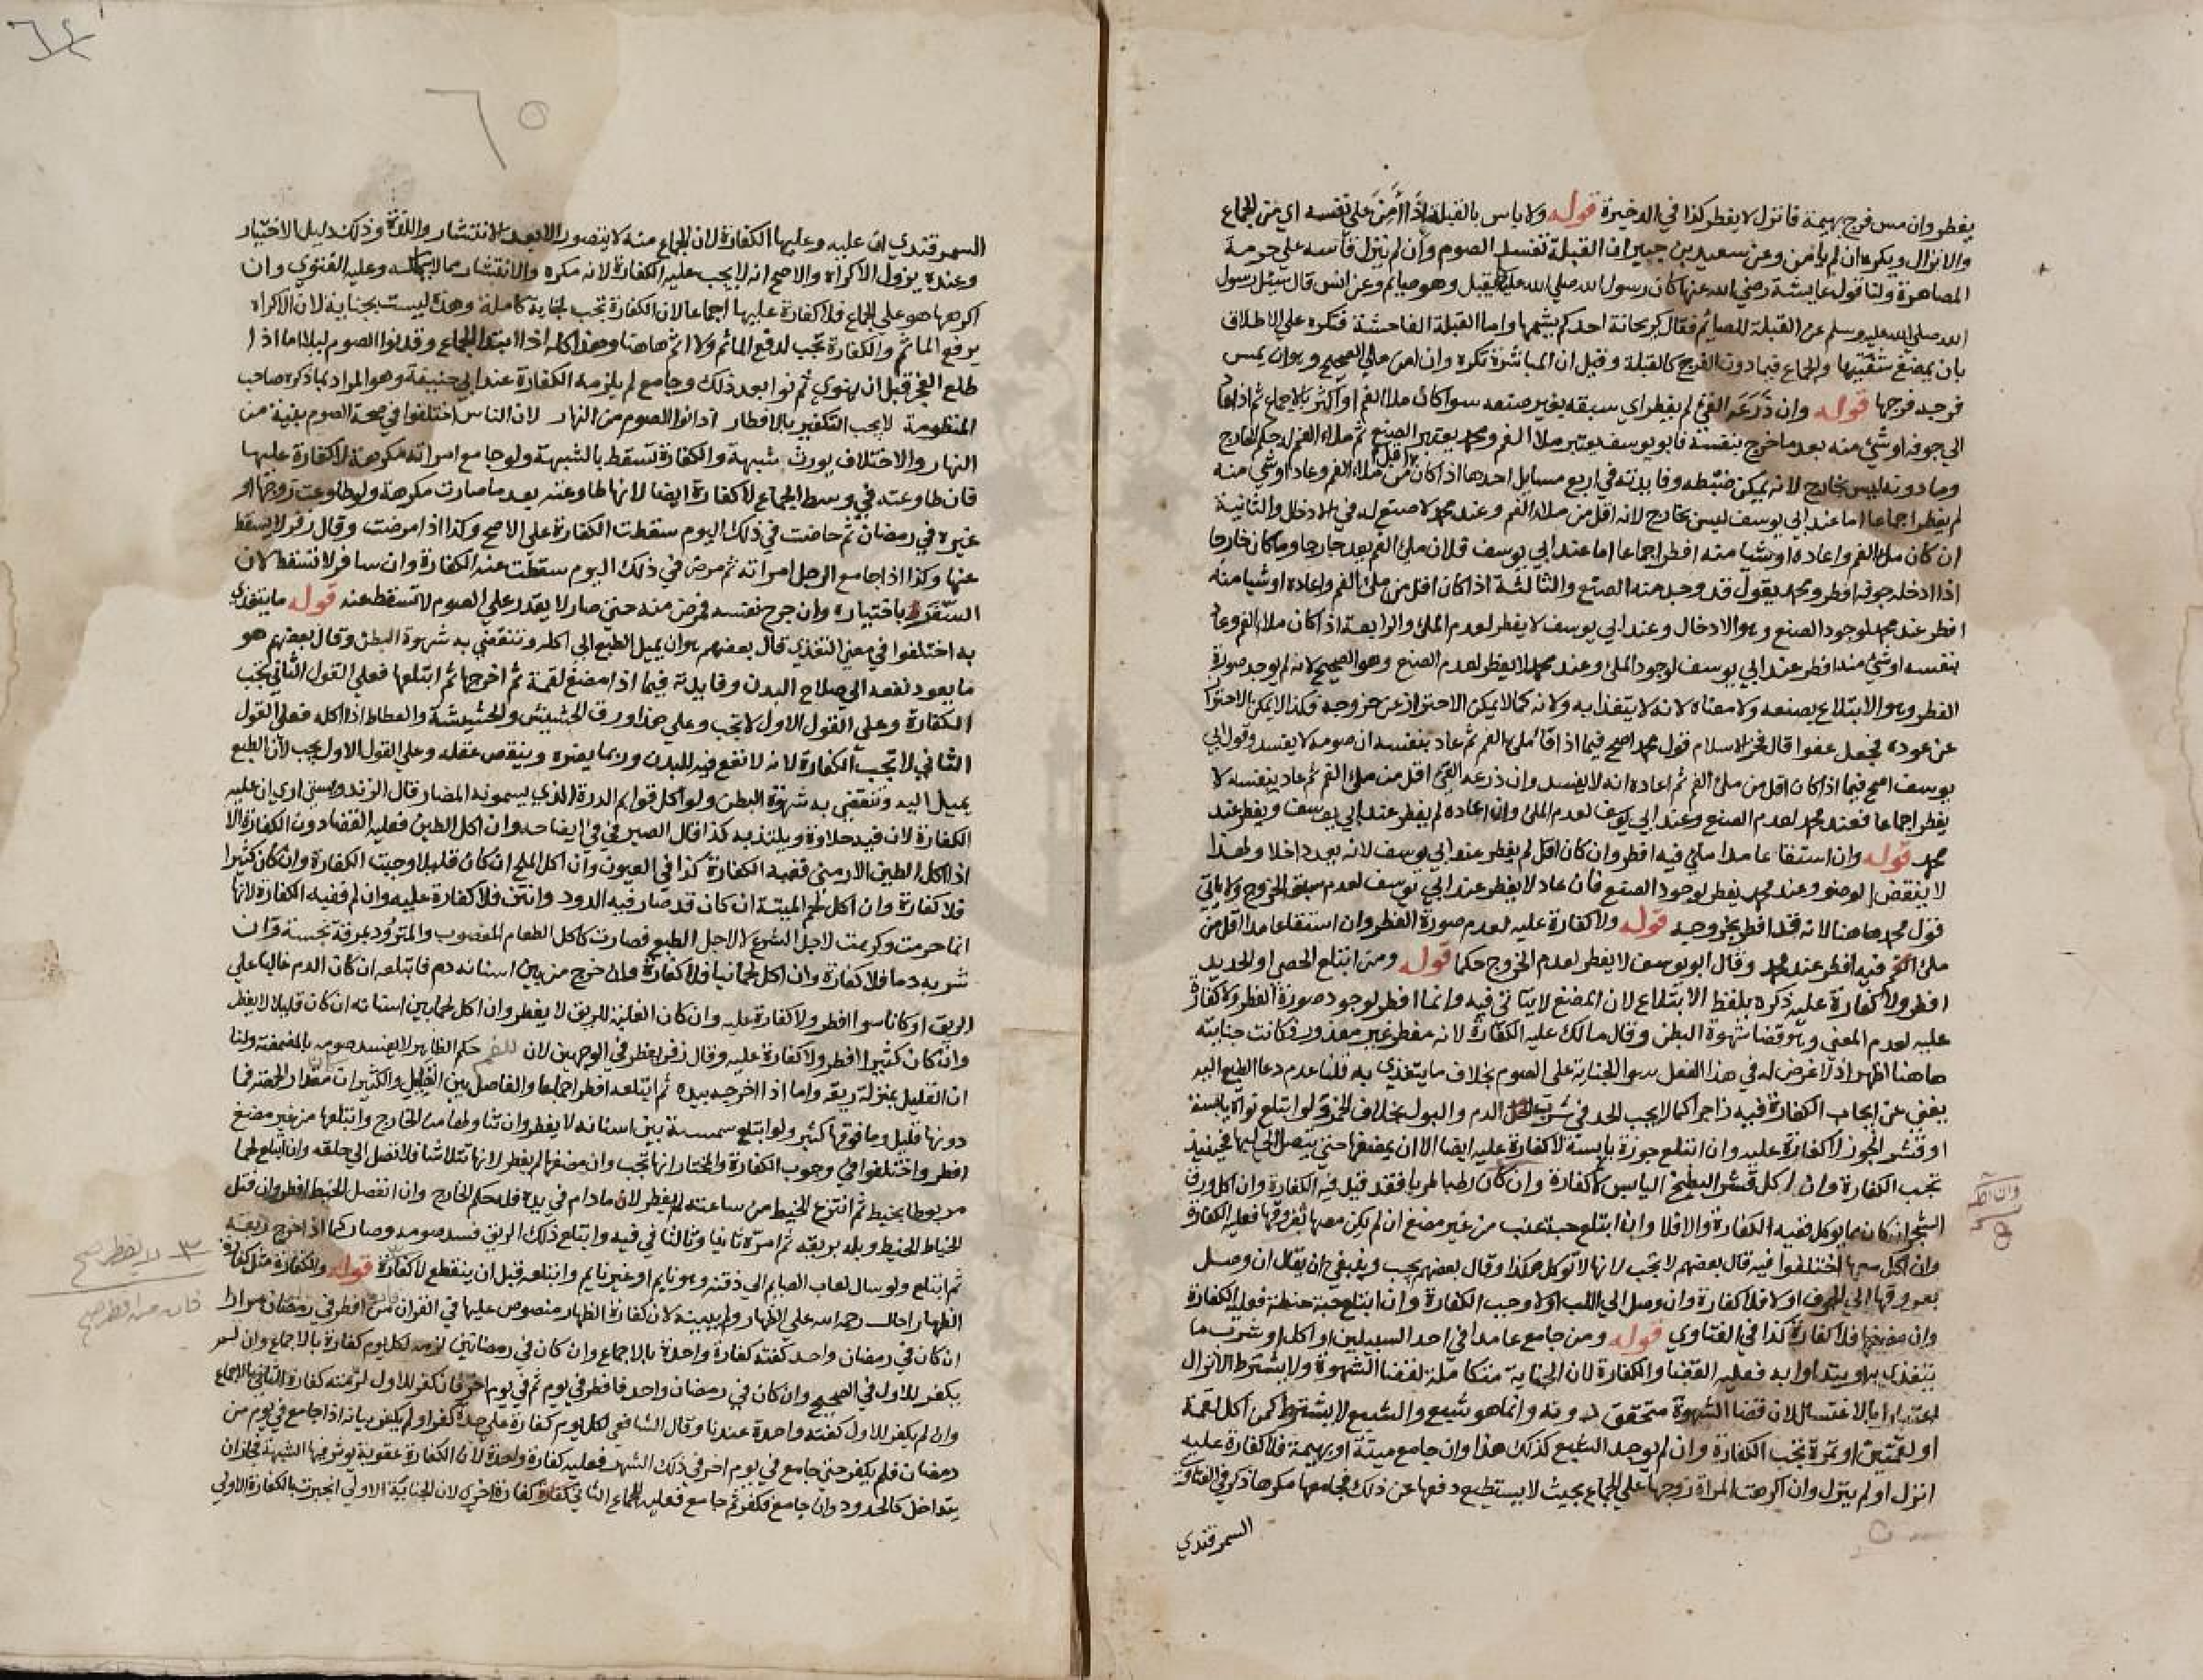 يفطر وان مس فرج بهيمة فانزل لا يفطر كذا في الذخيرة قوله ولا باس بالقبلة اذا أمن على نفسه اي من الجماع
والانزال ويكره ان لم يامن وعن سعيد بن جبير ان القبلة تفسد الصوم وان لم ينزل قاسه على حرمة
المصاهرة ولنا قول عايشة رضي الله عنها كان رسول الله صلى الله عليه يقبل وهو صايم وعن انس قال سئل رسول
الله صلى الله عليه وسلم عن القبلة للصائم فقال كريحانة احدكم يشمها واما القبلة الفاحشة فتكره على الاطلاق
بان يمضغ شفتيها والجماع فيما دون الفرج كالقبلة وقيل ان المباشرة تكره وان امن على الصحيح وهو ان يمس
فرجه فرجها قوله وان ذرعه القئ لم يفطر اي سبقه بغير صنعه سوا كان ملا الفم او اكثر بالاجماع ثم اذا عاد
الي جوفه او شئ منه بعد ما خرج بنفسه فابو يوسف يعتبر ملا الفم ومحمد يعتبر الصنع ثم ملاء الفم له حكم الخارج
وما دونه ليس بخارج لانه يمكن ضبطه وفايدته في اربع مسايل احدها اذا كان اقل من ملاء الفم وعاد او شي منه
لم يفطر اجماعا اما عند ابي يوسف ليس بخارج لانه اقل من ملا الفم وعند محمد لا صنع له في الادخال والثانية
ان كان ملا الفم واعاده او شيا منه افطر اجماعا اما عند ابي يوسف فلان ملئ الفم يعد خارجا وما كان خارجا
اذا ادخله جوفه افطر ومحمد يقول قد وجد منه الصنع والثالثة اذا كان اقل من ملئ الفم واعاده او شيا منه
افطر عند محمد لوجود الصنع وهو الادخال وعند ابي يوسف لا يفطر لعدم الملئ والرابعة اذا كان ملا الفم وعاد
بنفسه او شئ منه افطر عند ابي يوسف لوجود الملئ وعند محمد لا يفطر لعدم الصنع وهو الصحيح لانه لم يوجد صورة
الفطر وهو الابتلاع بصنعه ولا معناه لانه لا يتغذا به ولانه كما لا يمكن الاحتراز عن خروجه فكذا لا يمكن الاحتراز
عن عوده فجعل عفوا قال فخر الاسلام قول محمد اصح فيما اذا قا ملئ الفم ثم عاد بنفسه ان صومه لا يفسد وقول ابي
يوسف اصح فيما اذا كان اقل من ملئ الفم ثم اعاده انه لا يفسد وان ذرعه القئ اقل من ملئ الفم ثم عاد بنفسه لا
يفطر اجماعا فعند محمد لعدم الصنع وعند ابي يوسف لعدم الملئ وان اعاده لم يفطر عند ابي يوسف ويفطر عند
محمد قوله وان استقا عامدا ملئ فيه افطر وان كان اقل لم يفطر عند ابي يوسف لانه يعد داخلا ولهذا
لا ينقض الوضو وعند محمد يفطر لوجود الصنع فان عاد لا يفطر عند ابي يوسف لعدم سبق الخروج ولا ياتي
قول محمد هاهنا لانه قد افطر بخروجه قوله ولا كفارة عليه لعدم صورة الفطر وان استقا عامدا اقل من
ملئ الفم فيه افطر عند محمد وقال ابو يوسف لا يفطر لعدم الخروج حكما قوله ومن ابتلع الحصى او الحديد
افطر ولا كفارة عليه ذكره بلفظ الابتلاع لان المضغ لا يتاتى فيه وانما افطر لوجود صورة الفطر ولا كفارة
عليه لعدم المعنى وهو قضا شهوة البطن وقال مالك عليه الكفارة لانه مفطر غير معذور فكانت جنايته
هاهنا اظهر اذ لا غرض له في هذا الفعل سوا الجناية على الصوم بخلاف ما يتغذي به قلنا عدم دعا الطبع اليه
يغني عن ايجاب الكفارة فيه زاجرا كما لا يجب الحد في شرب الدم والبول بخلاف الخمر ولو ابتلع نواة يابسة
او قشر الجوز لا كفارة عليه وان ابتلع جوزة يابسة لا كفارة عليه ايضا الا ان يمضغها حتى يتصل الى لبها فحينئذ
تجب الكفارة وان اكل قشر البطيخ اليابس لا كفارة وان كان رطبا طريا فقد قيل فيه الكفارة وان اكل ورق
الشجر ان كان مما يوكل ففيه الكفارة والا فلا وان ابتلع حبة عنب من غير مضغ ان لم يكن معها ثفروقها فعليه الكفارة
وان اكل معها اختلفوا فيه قال بعضهم لا يجب لانها لا توكل هكذا وقال بعضهم يجب وينبغي ان يقال ان وصل
ثفروقها الى الجوف اولا فلا كفارة وان وصل الي اللب اولا وجبت الكفارة وان ابتلع حبة حنطة فعليه الكفارة
وان مضغها فلا كفارة كذا في الفتاوي قوله ومن جامع عامدا في احد السبيلين او اكل او شرب ما
يتغذي به او يتداوا به فعليه القضا والكفارة لان الجناية متكاملة لقضا الشهوة ولا يشترط الانزال
اعتبارا بالاغتسال لان قضا الشهوة متحقق دونه وانما هو شبع والشبع لا يشترط كمن اكل لقمة
او لقمتين او تمرة تجب الكفارة وان لم يوجد الشبع كذلك هذا وان جامع ميتة او بهيمة فلا كفارة عليه
انزل او لم ينزل وان اكرهت المراة زوجها على الجماع بحيث لا يستطيع دفعها عن ذلك فجامعها مكرها ذكر في الفتاوى
السمرقندي
وان اكل
٦٤
٦٥
السمرقندي ان عليه وعليها الكفارة لان الجماع منه لا يتصور الا بعد الانتشار واللذة وذلك دليل الاختيار
وعنده يزول الاكراه والاصح انه لا يجب عليه الكفارة لانه مكره والانتشار مما لا يملكه وعليه الفتوي وان
اكرهها هو على الجماع فلا كفارة عليها اجماعا لان الكفارة تجب لجناية كاملة وهذه ليست بجناية لان الاكراه
يرفع الماثم والكفارة تجب لدفع الماثم ولا اثم هاهنا وهذا كله اذا ابتدا الجماع وقد نوا الصوم ليلا اما اذا
طلع الفجر قبل ان ينوي ثم نوا بعد ذلك وجامع لم يلزمه الكفارة عند ابي حنيفة وهو المراد بما ذكره صاحب
المنظومة لا يجب التكفير بالافطار اذا نوا الصوم من النهار لان الناس اختلفوا في صحة الصوم بنية من
النهار والاختلاف يورث شبهة والكفارة تسقط بالشبهة ولو جامع امراته مكرهة لا كفارة عليها
فان طاوعته في وسط الجماع لا كفارة ايضا لانها طاوعته بعد ما صارت مكرهة ولو طاوعت زوجها او
غيره في رمضان ثم حاضت في ذلك اليوم سقطت الكفارة على الاصح وكذا اذا مرضت وقال زفر لا يسقط
عنها وكذا اذا جامع الرجل امراته ثم مرض في ذلك اليوم سقطت عنه الكفارة وان سافر لا تسقط لان
السفر باختياره وان جرح نفسه فمرض منه حتى صار لا يقدر على الصوم لا تسقط عنه قوله ما يتغذي
به اختلفوا في معنى التغذي قال بعضهم هو ان يميل الطبع الى اكله وتنقضي به شهوة البطن وقال بعضهم هو
ما يعود نفعه الي صلاح البدن وفايدته فيما اذا مضغ لقمة ثم اخرجها ثم ابتلعها فعلى القول الثاني تجب
الكفارة وعلى القول الاول لا تجب وعلى هذا ورق الحشيش والحشيشة والعطاط اذا اكله فعلى القول
الثاني لا تجب الكفارة لانه لا نفع فيه للبدن وربما يضره وينقص عقله وعلى القول الاول يجب لان الطبع
يميل اليه وتنقضي به شهوة البطن ولو اكل قوايم الذرة الذي يسمونه المضار قال الزندويستي اري ان عليه
الكفارة لان فيه حلاوة ويلتذ به كذا قال الصيرفي في ايضاحه وان اكل الطين فعليه القضا دون الكفارة الا
اذا اكل الطين الارمني ففيه الكفارة كذا في العيون وان اكل الملح ان كان قليلا وجبت الكفارة وان كان كثيرا
فلا كفارة وان اكل لحم الميتة ان كان قد صار فيه الدود وانتن فلا كفارة عليه وان لم ففيه الكفارة لانها
انما حرمت وكرهت لاجل الشرع لا لاجل الطبع فصارت كاكل الطعام المغصوب والمثرود بمرقة نجسة وان
شربه دما فلا كفارة وان اكل لحما نيا فلا كفارة وان خرج من بين اسنانه دم فابتلعه ان كان الدم غالبا على
الريق او كانا سوا افطر ولا كفارة عليه وان كان الغلبة للريق لا يفطر وان اكل لحما بين اسنانه ان كان قليلا لا يفطر
وان كان كثيرا افطر ولا كفارة عليه وقال زفر يفطر في الوجهين لان للفم حكم الظاهر لا يفسد صومه بالمضمضة ولنا
ان القليل بمنزلة ريقه واما اذا اخرجه بيده ثم ابتلعه افطر اجماعا والفاصل بين القليل والكثير ان مقدار الحمصة فما
دونها قليل وما فوقها كثير ولو ابتلع سمسمة بين اسنانه لا يفطر وان تناولها من الخارج وابتلعها من غير مضغ
افطر واختلفوا في وجوب الكفارة والمختار انها تجب وان مضغها لم يفطر لانها تتلاشا فلا تصل الى حلقه وان ابتلع لحما
مربوطا بخيط ثم انتزع الخيط من ساعته لم يفطر لانه ما دام في يده فله حكم الخارج وان انفصل الخيط افطر وان فتل
الخياط الخيط وبله بريقه ثم امره ثانيا وثالثا في فيه وابتلع ذلك الريق فسد صومه وصار كما اذا اخرج ريقه
ثم ابتلع ولو سال لعاب الصايم الى ذقنه وهو نايم او غير نايم وابتلعه قبل ان ينقطع لا كفارة قوله والكفارة مثل كفارة
الظهار احال رحمه الله على الظهار ولم يبينه لان كفارة الظهار منصوص عليها في القران من افطر في رمضان مرارا
ان كان في رمضان واحد كفته كفارة واحدة بالاجماع وان كان في رمضانين لزمه لكل يوم كفارة بالاجماع وان لم
يكفر للاول في الصحيح وان كان في رمضان واحد فافطر في يوم ثم في يوم اخر فان كفر للاول لزمته كفارة الثاني بالاجماع
وان لم يكفر للاول كفته واحدة عندنا وقال الشافعي لكل يوم كفارة على حدة كفر او لم يكفر بيانه اذا جامع في يوم من
رمضان فلم يكفر حتى جامع في يوم اخر في ذلك الشهر فعليه كفارة واحدة لان الكفارة عقوبة يوثر فيها الشبهة فجاز ان
يتداخل كالحدود وان جامع فكفر ثم جامع فعليه للجماع الثاني كفارة اخرى لان الجناية الاولي انجبرت بالكفارة الاولي
لا يفطر صح